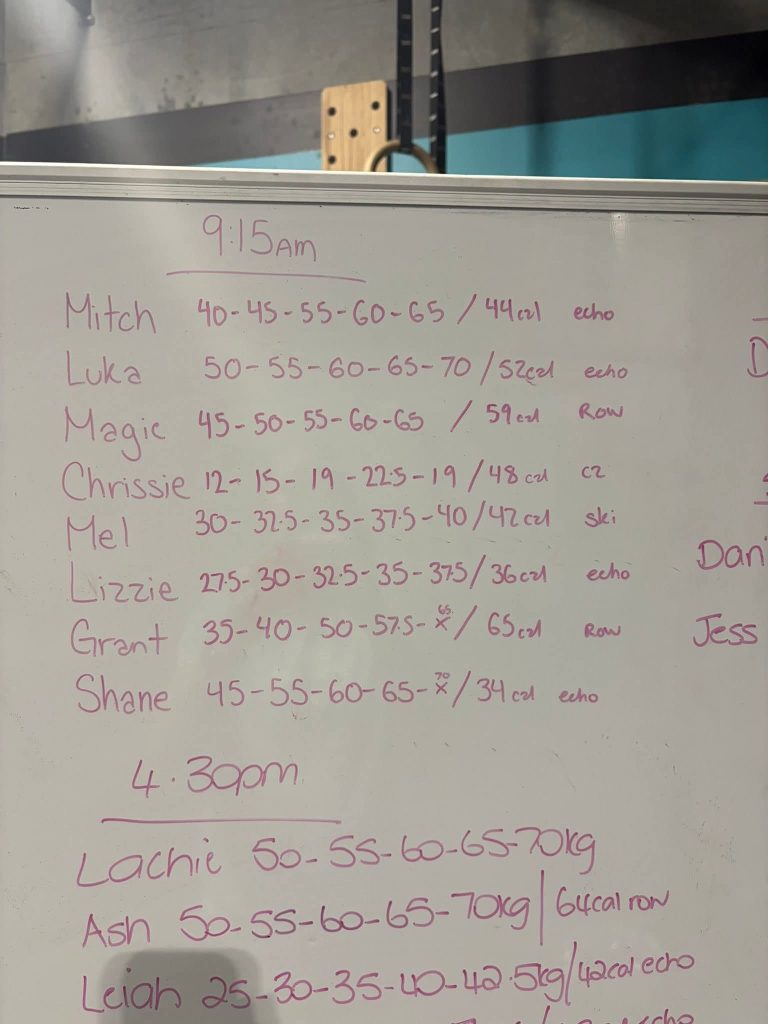 9:15Am
Mitch 40-45-55-60-65 / 44cal echo
Luka 50-55-60-65-70 / 52cal echo
Magic 45-50-55-60-65 / 59cal Row
Chrissie 12-15-19-22.5-19 / 48cal c2
Mel 30-32.5-35-37.5-40 / 42cal ski
Lizzie 27.5-30-32.5-35-37.5 / 36cal echo
Grant 35-40-50-57.5-65 x / 65cal Row
Shane 45-55-60-65-70 x / 34cal echo
Dan
Jess
4.30pm
Lachie 50-55-60-65-70kg
Ash 50-55-60-65-70kg | 64cal row
Leiah 25-30-35-40-42.5kg / 42cal echo
echo